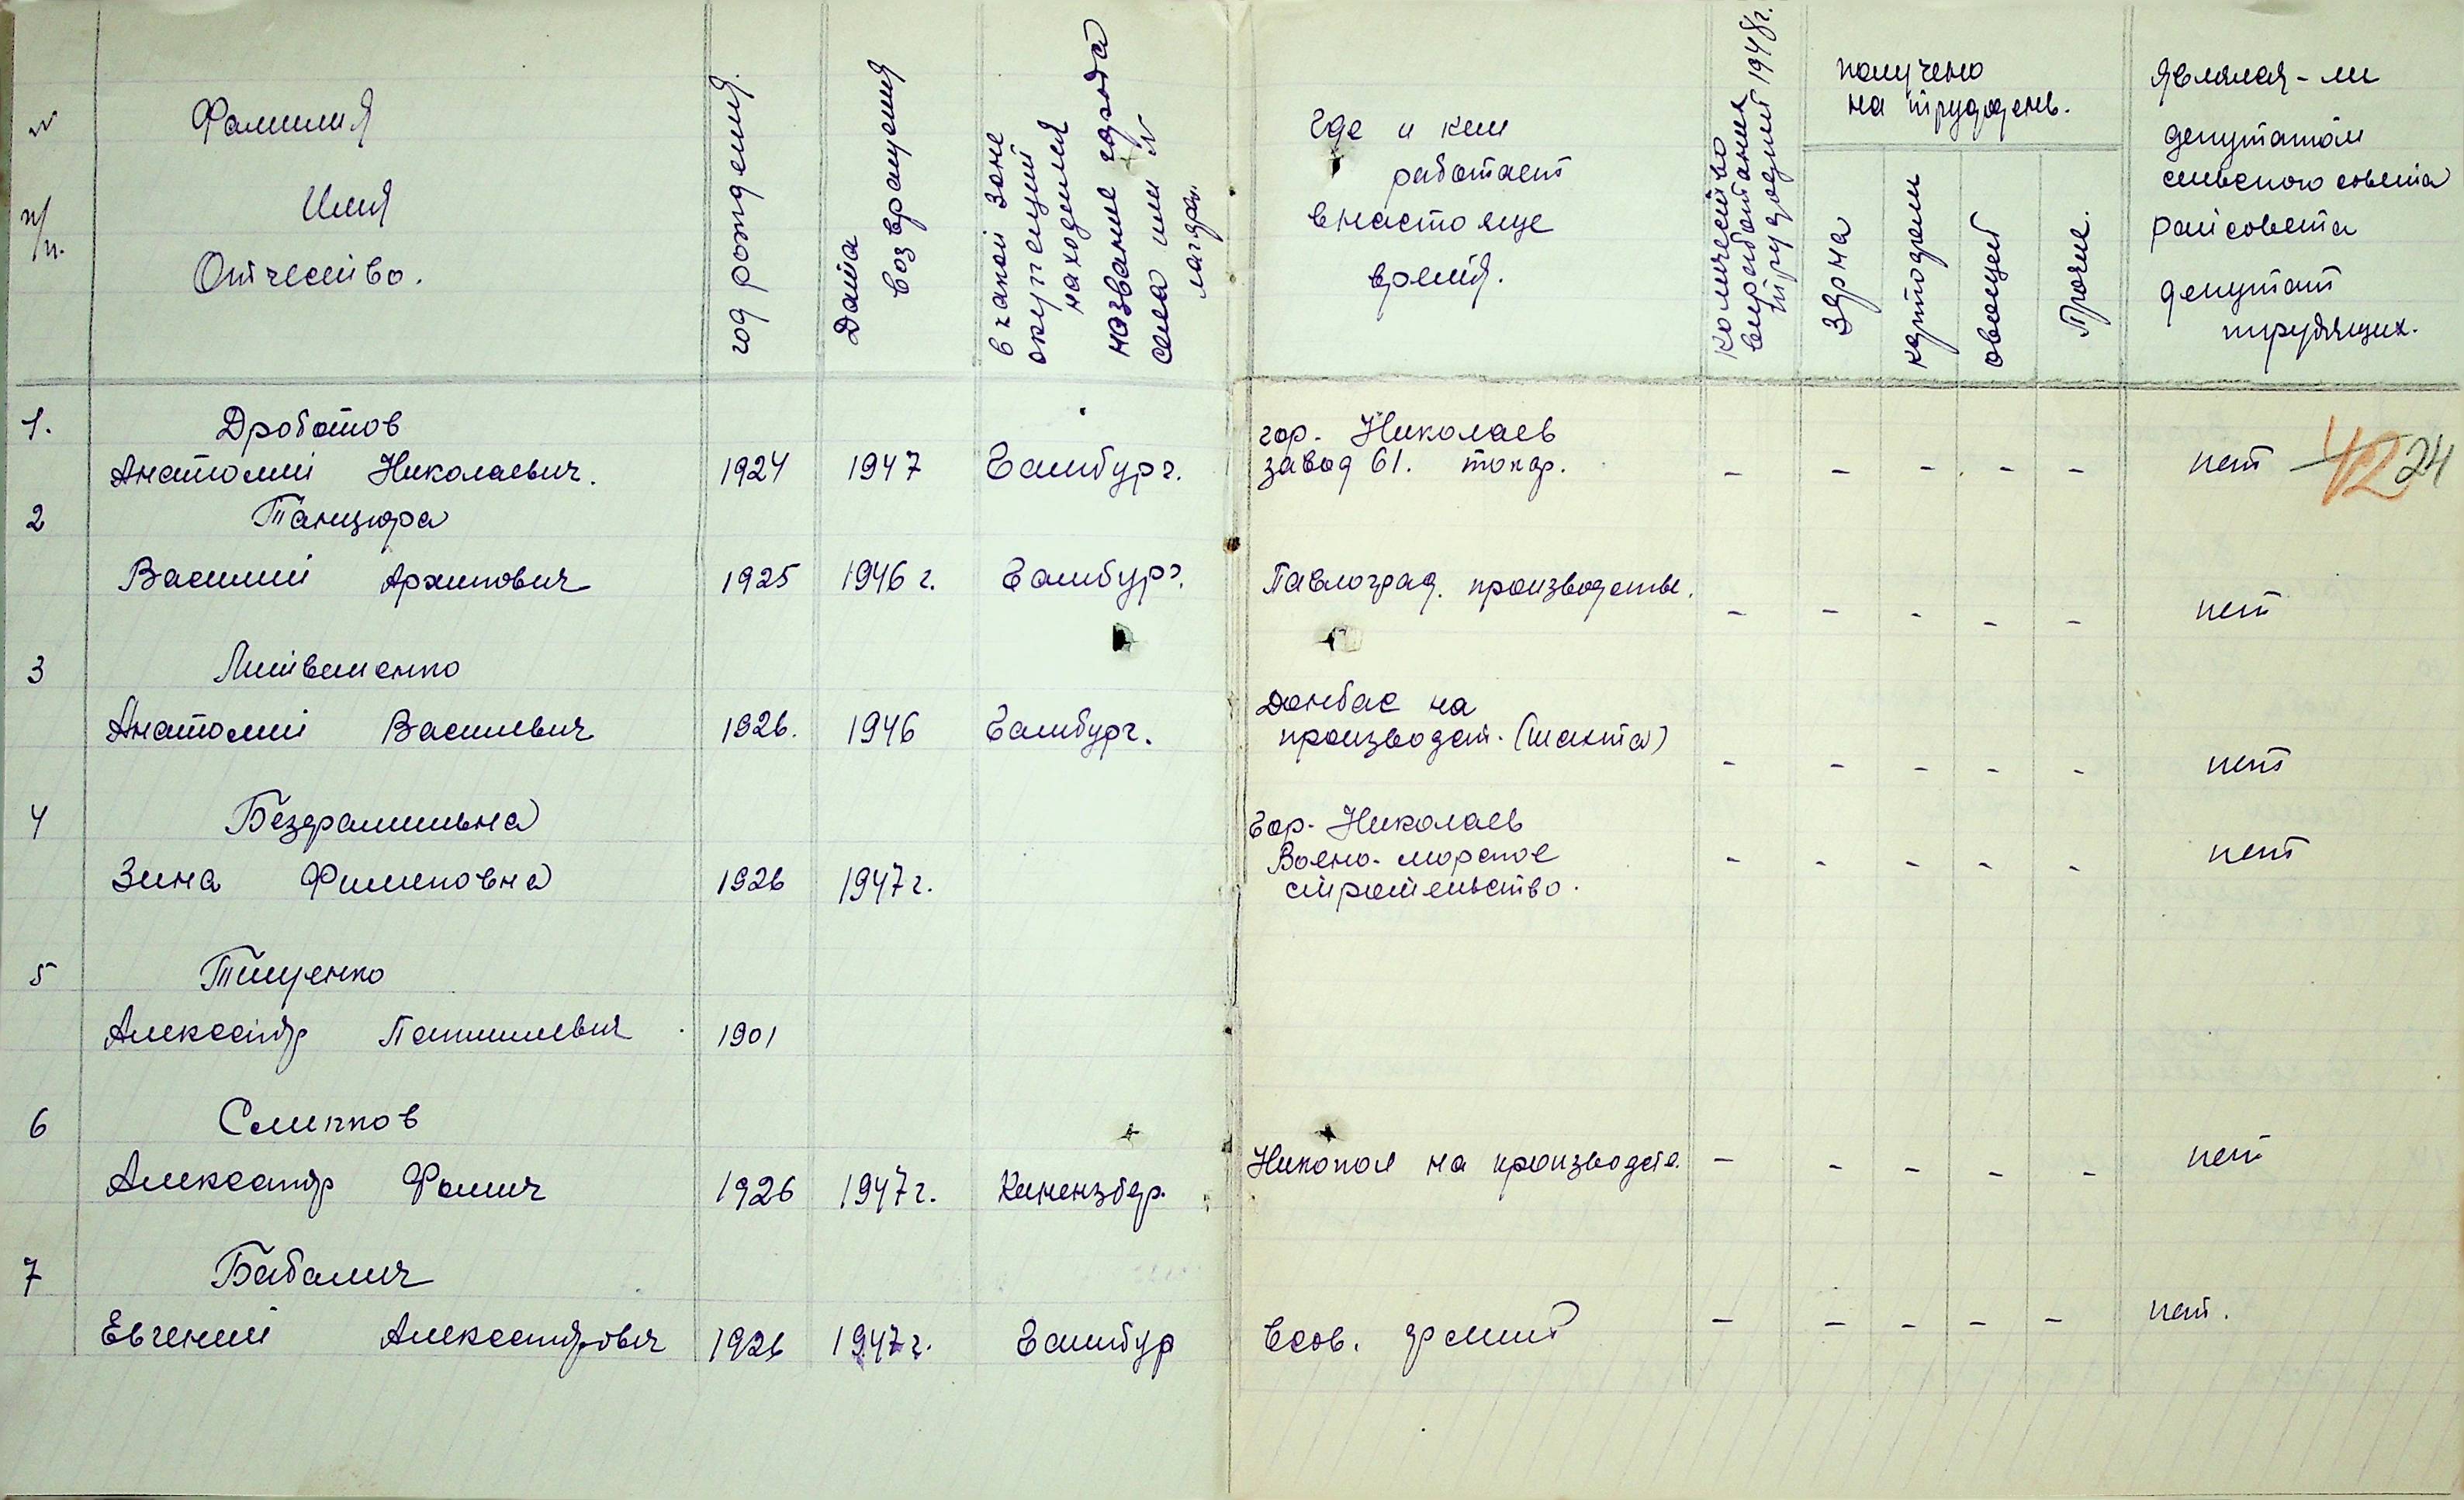 №
п/п.
Фамилия
Имя
Отчество.
год рождения.
Дата
возвращения
в какой зоне
окупации
находился
название города
села или №
лагеря.
Где и кем
работает
внастояще
время.
Количество
выработаных
трудодней 1948г.
получено
на трудодень.
Зерна
картофеля
овощей
Прочее.
Являлся-ли
депутатом
сельского совета
райсовета
депутат
трудящих.
1. Дробатов
Анатолий Николаевич. 1924 1947 Гамбург. гор. Николаев
завод 61. токар. - - - - - нет 42 24
2 Танцюра
Василий Архипович 1925 1946 г. Гамбург. Павлоград. производстве. - - - - - нет
3 Литвиненко
Анатолий Василевич 1926. 1946 Гамбург. Донбас на
производст. (шахта) - - - - - нет
4
Зина Филиповна 1926 1947г. Гор. Николаев
Воено-морское
строительство. - - - - - нет
5 Тищенко
Александр 1901
6 Слипков
Александр Фомич 1926 1947г. Кенензбер. Никопол на производств. - - - - - нет
7 Бабалич
Евгений Александрович 1926 1947г. Гамбур Всов. армии - - - - - нет.